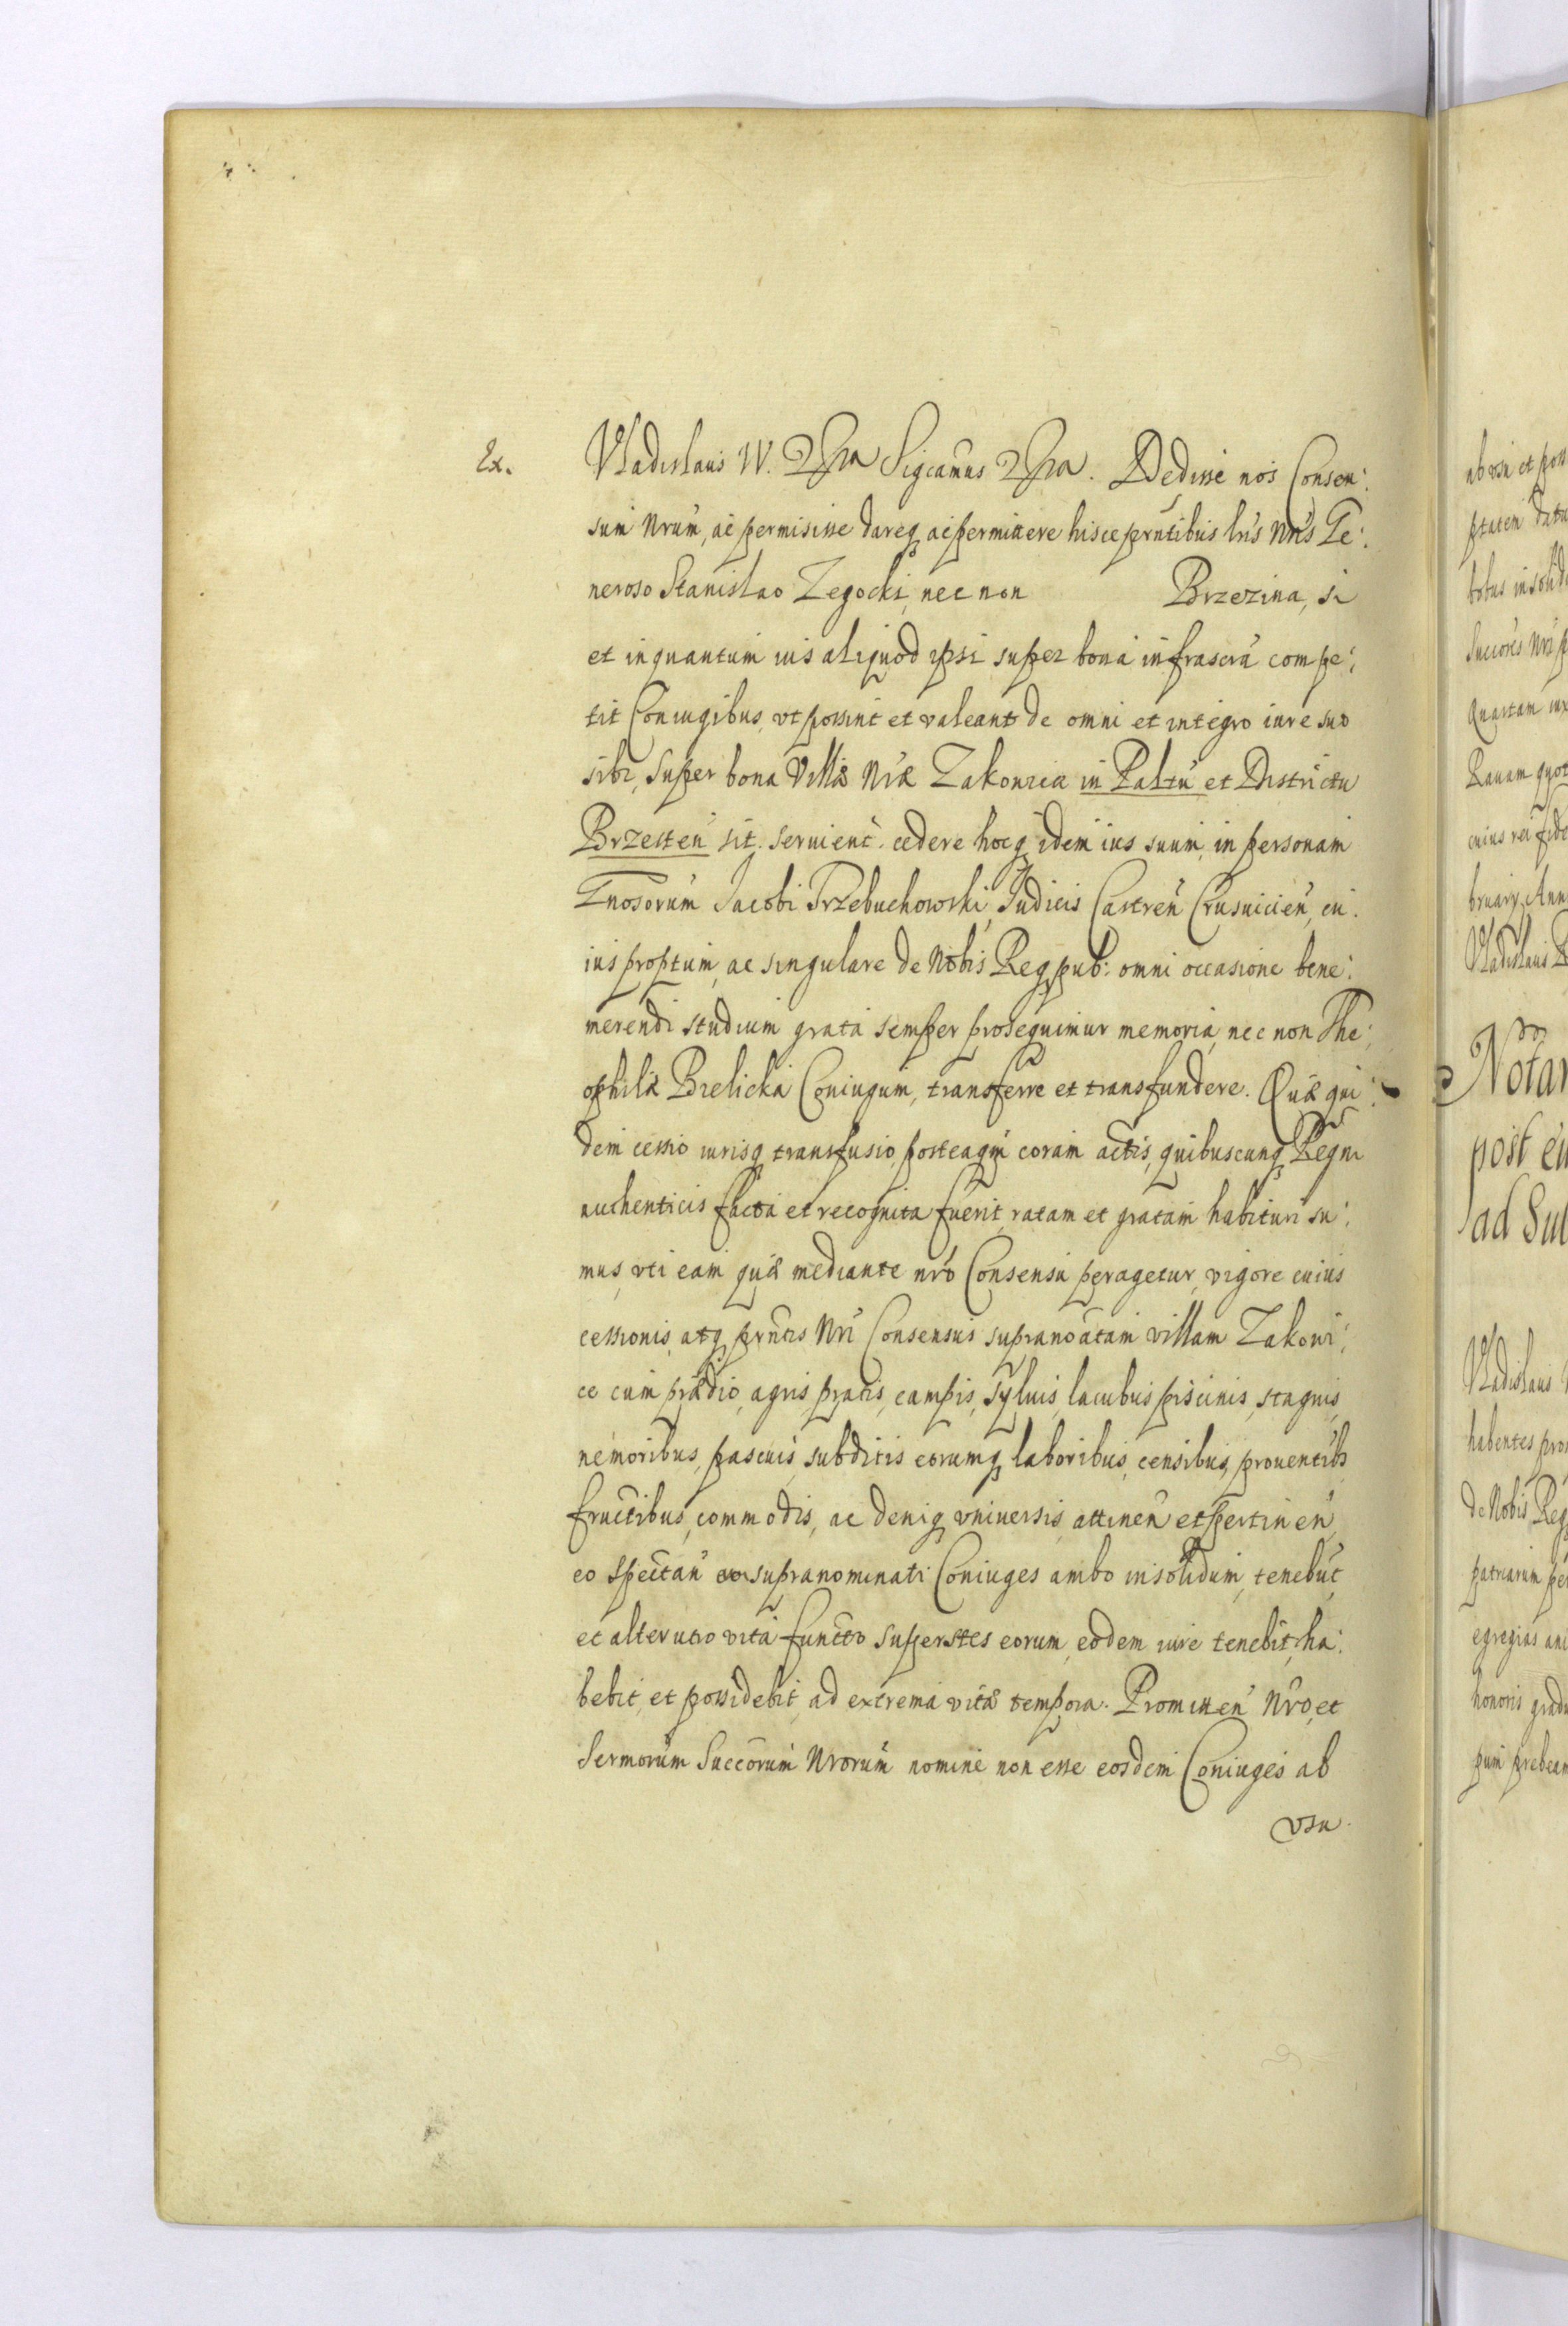 Ex.
Vladislaus IV. &ra Sigcamus &ra. Dedisse nos Consen:
sum Nrum, ac permisisse dareq ac permittere hisce prntibus lris Nris Ge:
neroso Stanislao Zegocki, nec non Brzezina, si
et inquantum ius aliquod ipsi super bona infrascra compe:
tit Coniugibus, vt possint et valeant de omni et integro iure suo
sibi, super bona Villæ Nræ Zakonica in Paltu et Districtu
Brzesten sit. seruient. cedere hocq idem ius suum, in personam
Gnosorum Jacobi Trzebuchowski, Judicis Castren Crusuicien, cu:
ius promptum, ac singulare de Nobis Reqpub: omni occasione bene:
merendi studium grata semper prosequimur memoria, nec non The:
ophilæ Bielicka Coniugum, transferre et transfundere. Quæ qui:
dem cessio iurisq transfusio, posteaqm coram actis, quibuscunq Regni
authenticis facta et recognita fuerit, ratam et gratam habituri su:
mus, vti eam quæ mediante nro Consensu peragetur, vigore cuius
cessionis, atq prntis Nri Consensus supranoatam villam Zakoni:
ce cum prædio, agris, pratis, campis, syluis, lacubus piscinis, stagnis,
nemoribus, pascuis, subditis eorumq laboribus, censibus, prouentibs
fructibus, commodis, ac deniq vniuersis, attinen et pertinen,
eo spectan supranominati Coniuges ambo insolidum, tenebut,
et alterutro vita functo superstes eorum, eodem iure tenebit, ha:
bebit, et possidebit, ad extrema vitæ tempora. Promitten Nro, et
Sermorum Succorum Nrorum nomine non esse eosdem Coniuges ab
vsu.